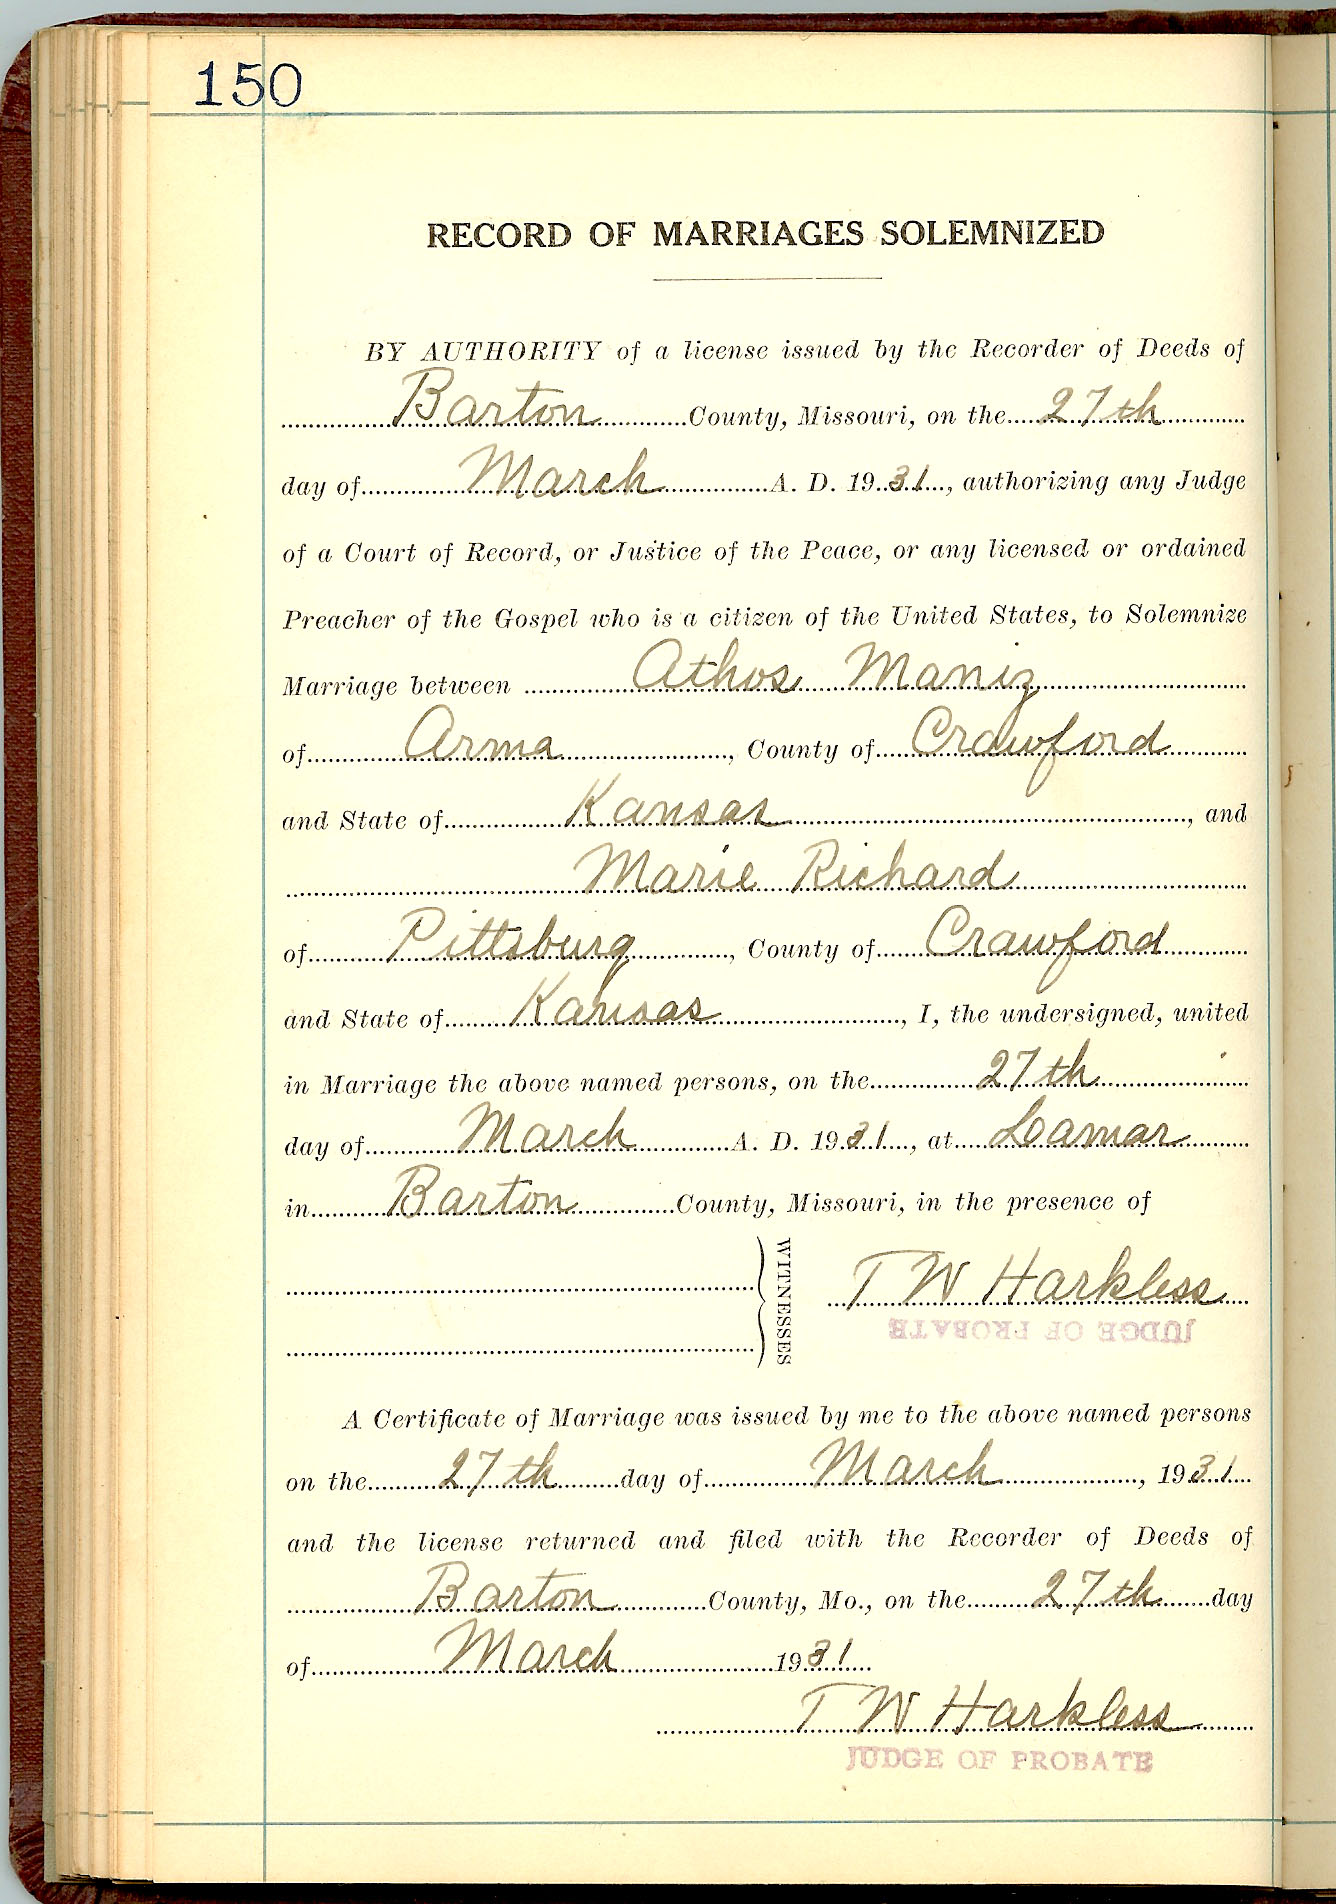 150
RECORD OF MARRIAGES SOLEMNIZED
BY AUTHORITY of a license issued by the Recorder of Deeds of
Barton County, Missouri, on the 27th
day of March A. D. 1931, authorizing any Judge
of a Court of Record, or Justice of the Peace, or any licensed or ordained
Preacher of the Gospel who is a citizen of the United States, to Solemnize
Marriage between Athos Maniz
of Arma, County of Crawford
and State of Kansas, and
Marie Richard
of Pittsburg, County of Crawford
and State of Kansas, I, the undersigned, united
in Marriage the above named persons, on the 27th
day of March A. D. 1931, at Lamar
in Barton County, Missouri, in the presence of
WITNESSES
T W Harkless
JUDGE OF PROBATE
A Certificate of Marriage was issued by me to the above named persons
on the 27th day of March, 1931
and the license returned and filed with the Recorder of Deeds of
Barton County, Mo., on the 27th day
of March 1931
T W Harkless
JUDGE OF PROBATE